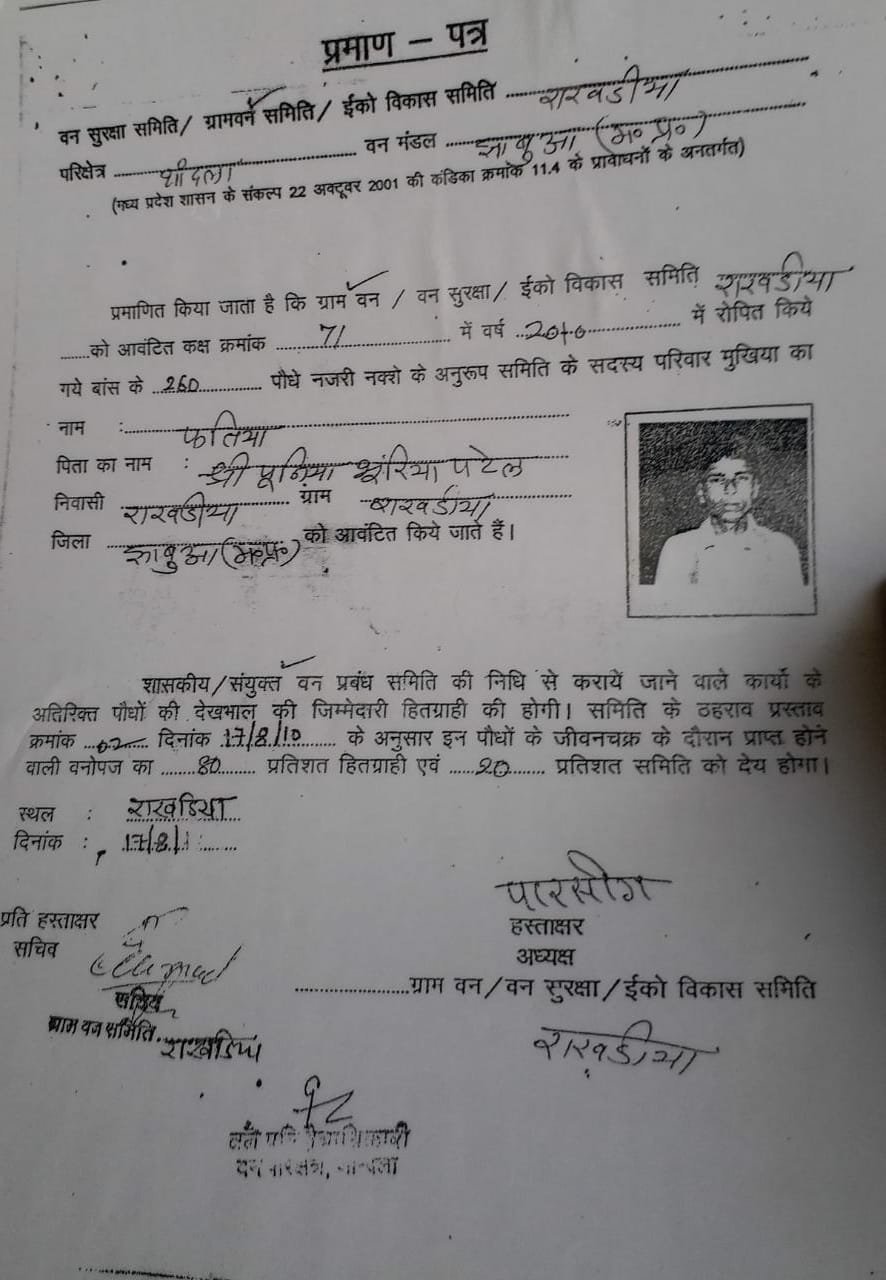 प्रमाण – पत्र
वन सुरक्षा समिति/ ग्रामवन समिति/ ईको विकास समिति राखडीया
परिक्षेत्र वन मंडल झाबुआ (म० प्र०)
(मध्य प्रदेश शासन के संकल्प 22 अक्टूवर 2001 की कंडिका क्रमांक 11.4 के प्रावाधनों के अनतर्गत)
प्रमाणित किया जाता है कि ग्राम वन / वन सुरक्षा/ ईको विकास समिति राखडीया
को आवंटित कक्ष क्रमांक 71 में वर्ष 2010 में रोपित किये
गये बांस के 260 पौधे नजरी नक्शे के अनुरूप समिति के सदस्य परिवार मुखिया का
नाम : फतिया
पिता का नाम : श्री पूनिया भूरिया पटेल
निवासी राखडीया ग्राम राखडीया
जिला झाबुआ (म०प्र०) को आवंटित किये जाते हैं।
शासकीय/संयुक्त वन प्रबंध समिति की निधि से करायें जाने वाले कार्यो के
अतिरिक्त पौधों की देखभाल की जिम्मेदारी हितग्राही की होगी। समिति के ठहराव प्रस्ताव
क्रमांक 02 दिनांक 17/8/10 के अनुसार इन पौधों के जीवनचक्र के दौरान प्राप्त होने
वाली वनोपज का 80 प्रतिशत हितग्राही एवं 20 प्रतिशत समिति को देय होगा।
स्थल : राखडिया
दिनांक : 17/8/
पारसींग
हस्ताक्षर
अध्यक्ष
ग्राम वन/वन सुरक्षा/ईको विकास समिति
राखडीया
प्रति हस्ताक्षर
सचिव
सचिव
ग्राम वन समिति राखडिया